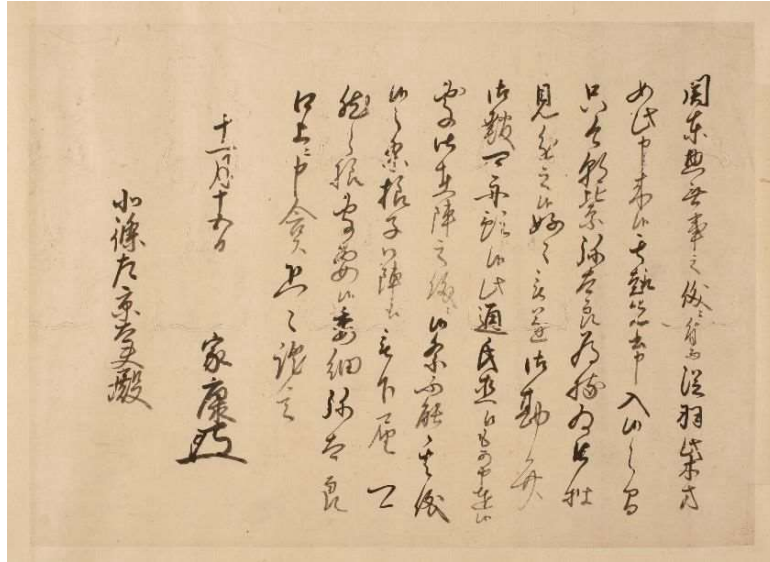 関東惣無事之儀ニ付而従羽柴方
如此申来候其趣先書申入候間
只今朝比奈弥太郎為持為御披
見進之候好々被遂御勘弁
御報可示預候此通氏直江も可申達候
処御在陣之儀ニ候条不能其儀
候之条様子御陣江届可
然之様専要候委細弥太郎
口上ニ申含候恐々謹言
十一月十五日
家康
北條左京大夫殿